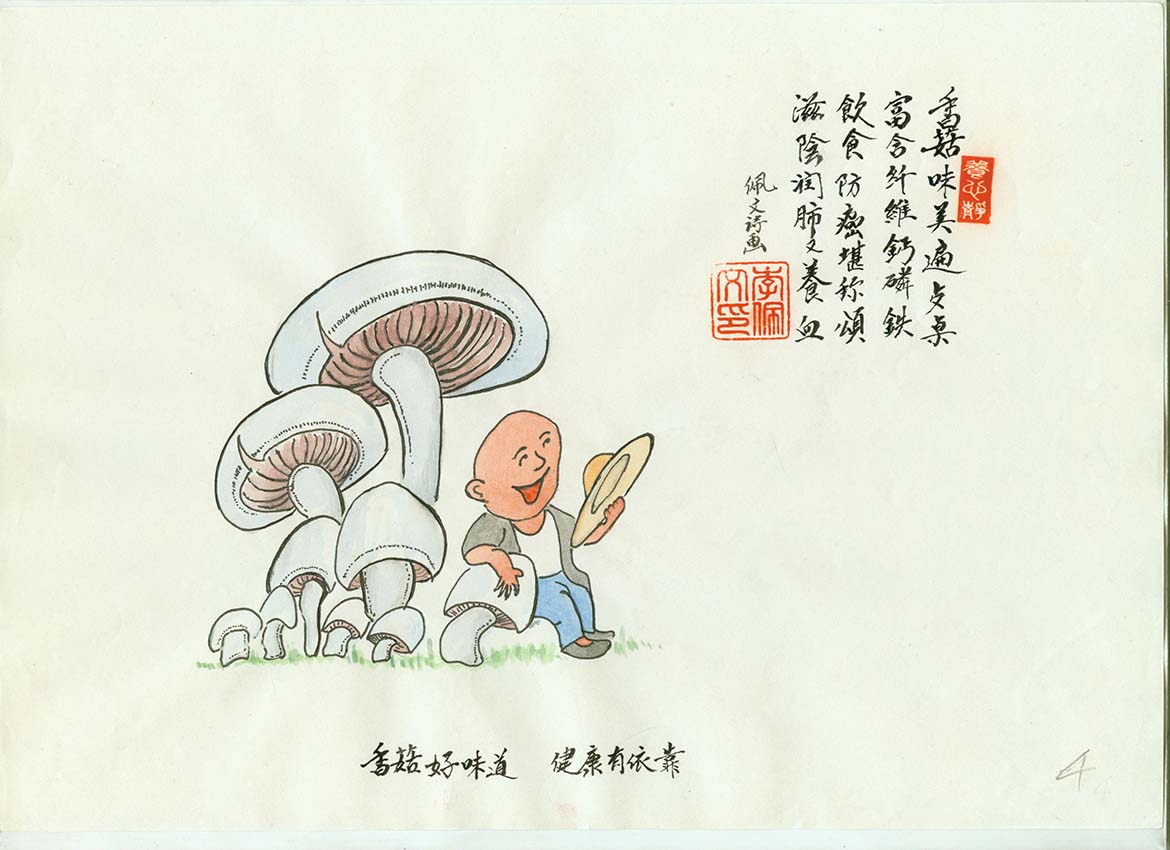 養心靜
香菇味美遍歺桌
富含纤維鈣磷鉄
飲食防癌堪称頌
滋陰润肺又養血
佩文诗画
李佩文印
香菇好味道 健康有依靠
4